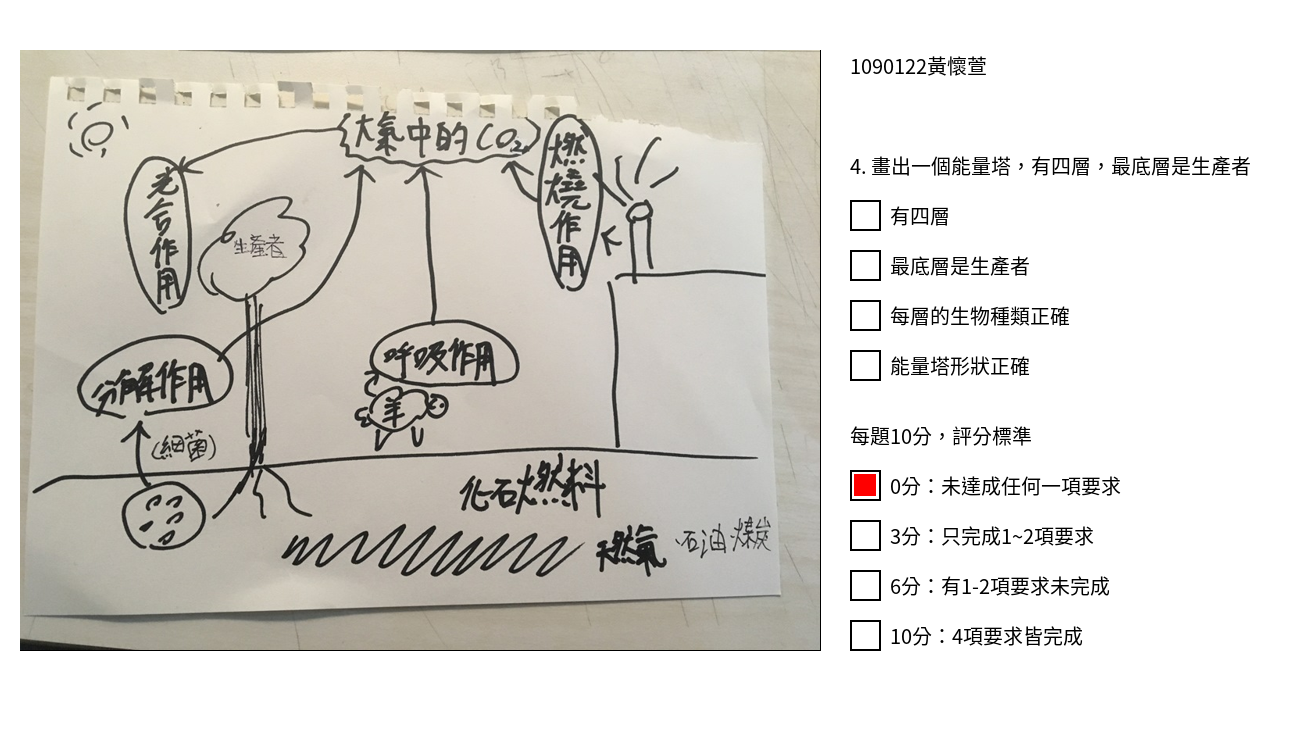 大氣中的CO₂
光合作用
生產者
燃燒作用
分解作用
(細菌)
呼吸作用
羊
化石燃料
天然氣 石油 煤炭
1090122黃懷萱
4. 畫出一個能量塔，有四層，最底層是生產者
有四層
最底層是生產者
每層的生物種類正確
能量塔形狀正確
每題10分，評分標準
0分：未達成任何一項要求
3分：只完成1~2項要求
6分：有1-2項要求未完成
10分：4項要求皆完成